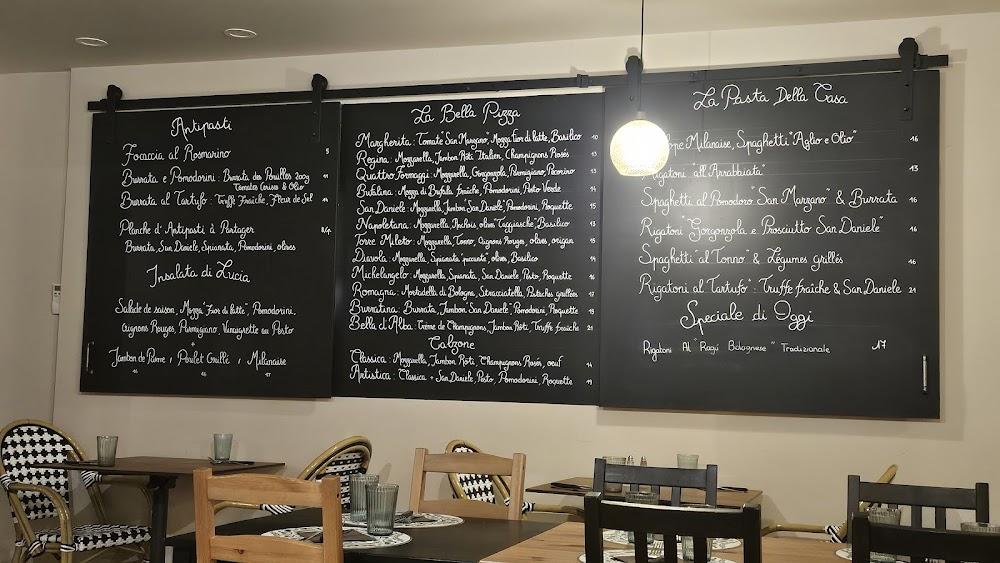 Antipasti
Focaccia al Rosmarino 5
Burrata e Pomodorini : Burrata des Pouilles 200g 11
Tomates Cerises & Olio
Burrata al Tartufo : Truffe Fraîche, Fleur de Sel 14
Planche d'Antipasti à Partager
Burrata, San Daniele, Spianata, Pomodorini, olives
Insalata di Lucia
Salade de saison, Mozza "Fior di latte", Pomodorini,
Oignons Rouges, Parmigiano, Vinaigrette au Pesto
+
Jambon de Parme / Poulet Grillé / Milanaise
16 16 17
La Bella Pizza
Margherita : Tomate "San Marzano", Mozza Fior di latte, Basilico 10
Regina : Mozzarella, Jambon Rôti "Italien", Champignons Rosés 13
Quattro Formaggi : Mozzarella, Gorgonzola, Parmigiano, Pecorino 13
Bufalina : Mozza di Bufala fraîche, Pomodorini, Pesto Verde 14
San Daniele : Mozzarella, Jambon "San Daniele", Pomodorini, Roquette 15
Napoletana : Mozzarella, Anchois, olives "Taggiasche" Basilico 13
Torre Mileto : Mozzarella, Tonno, Oignons Rouges, olives, origan 15
Diavola : Mozzarella, Spianata "piccante", olives, Basilico 14
Michelangelo : Mozzarella, Spianata, San Daniele, Pesto, Roquette 16
Romagna : Mortadella di Bologna, Stracciatella, Pistaches grillées 17
Burratina : Burrata, Jambon "San Daniele", Pomodorini Roquette 18
Bella d'Alba : Crème de Champignons, Jambon Rôti, Truffe fraîche 21
Calzone
Classica : Mozzarella, Jambon Rôti, Champignons Rosés, oeuf 14
Artistica : Classica + San Daniele, Pesto, Pomodorini, Roquette 19
La Pasta Della Casa
Milanaise, Spaghetti "Aglio e Olio" 16
Rigatoni "all'Arrabbiata"
Spaghetti al Pomodoro "San Marzano" & Burrata 16
Rigatoni "Gorgonzola e Prosciutto San Daniele" 16
Spaghetti "al Tonno" & Légumes grillés 16
Rigatoni al Tartufo : Truffe fraîche & San Daniele 21
Speciale di Oggi
Rigatoni Al "Ragù Bolognese" Tradizionale 17